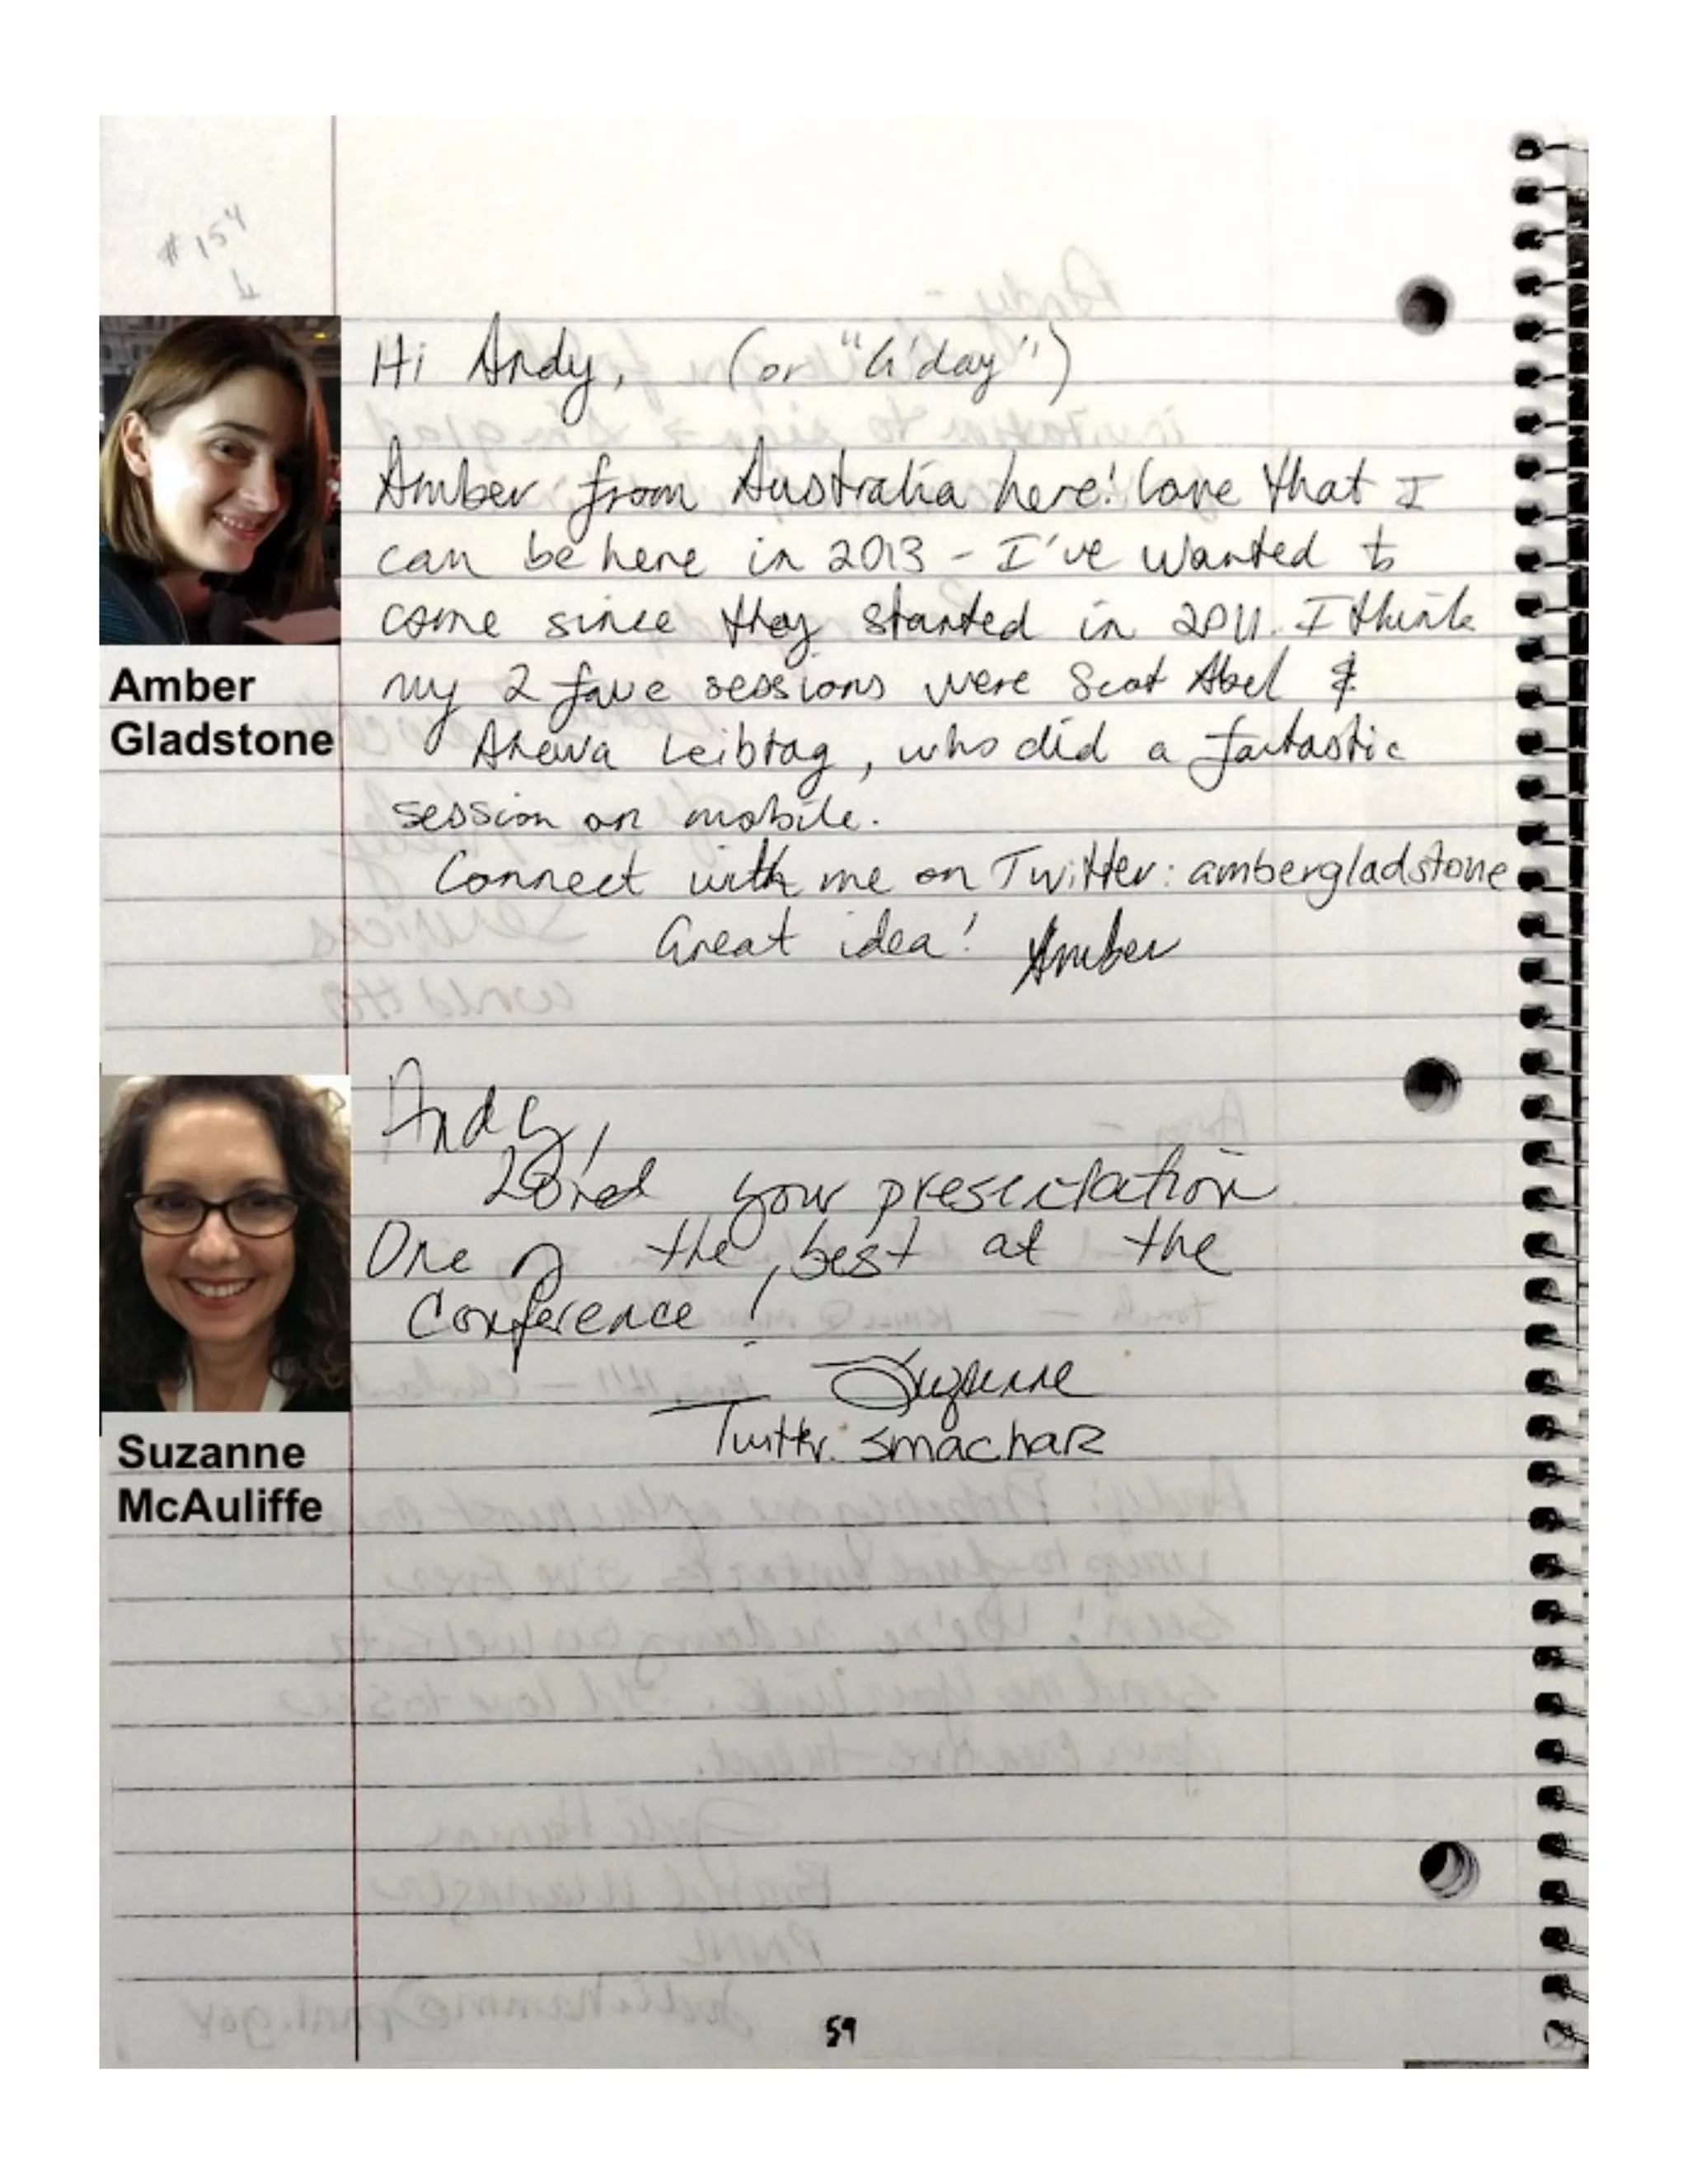 #154
Hi Andy, (or "G'day")
Amber from Australia here! Love that I
can be here in 2013 - I've wanted to
come since they started in 2011. I think
my 2 fave sessions were Scot Abel &
Ahava Leibtag, who did a fantastic
session on mobile.
Connect with me on Twitter: ambergladstone
Great idea! Amber
Amber
Gladstone
Andy,
Loved your presentation
One of the best at the
Conference!
Suzanne
Twitter: smachar
Suzanne
McAuliffe
59